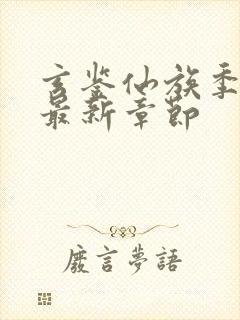 玄鉴仙族季
最新章节
廢言夢語